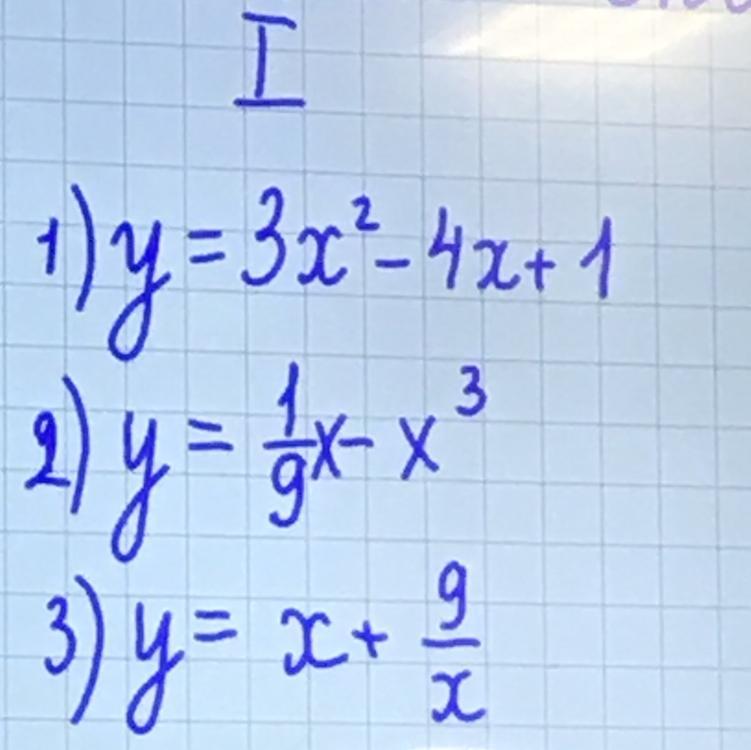 I
1) y = 3x² - 4x + 1
2) y = 1/9 x - x³
3) y = x + 9/x